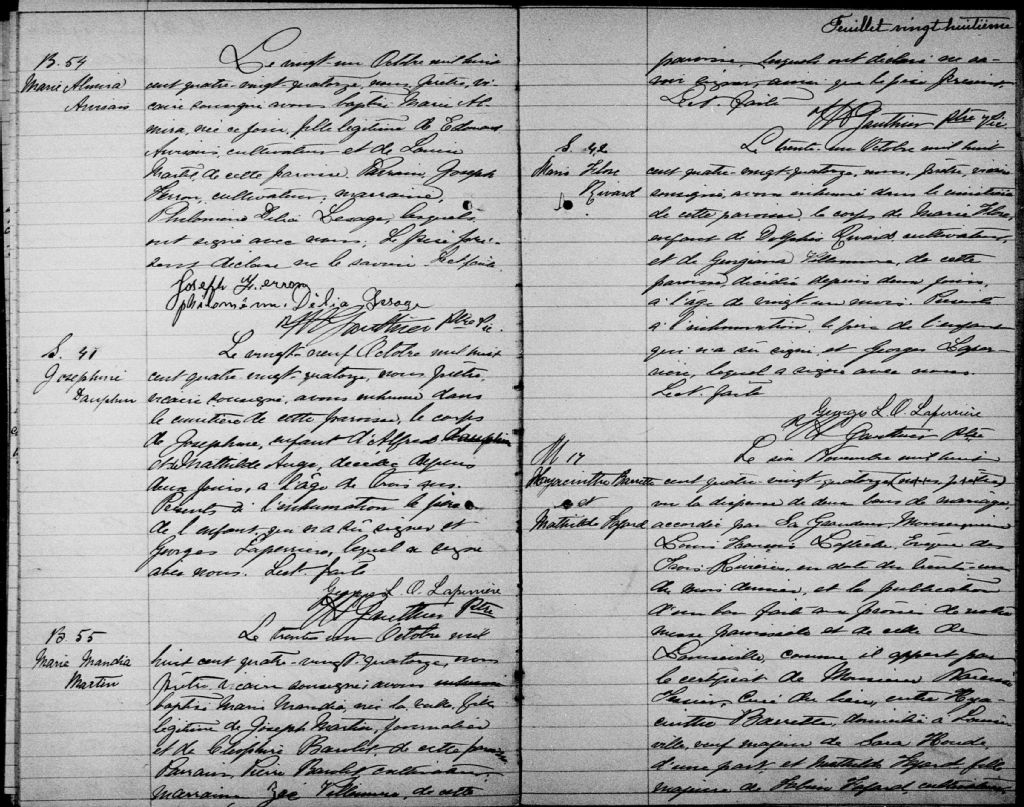 B. 54
Marie Almira
Auriais
Le vingt un Octobre mil huit
cent quatre-vingt-quatorze, nous, Prêtre, vi-
caire soussigné avons baptisé Marie Al-
mira, née ce jour, fille légitime de Edouard
Auriais, cultivateur et de Louise
de cette paroisse. Parrain, Joseph
cultivateur, marraine,
Philomène Délia Lesage, lesquels
ont signé avec nous. Le père pré-
sent déclare ne le savoir. Lect. faite
Joseph
philomène Délia Lesage
Gauthier Ptre Vic
S. 41
Josephine
Dauphin
Le vingt-neuf Octobre mil huit
cent quatre vingt-quatorze, nous prêtre,
vicaire soussigné, avons inhumé dans
le cimetière de cette paroisse, le corps
de Josephine, enfant d'Alfred Dauphin
et de Mathilde Auge, décédée depuis
deux jours, à l'âge de trois ans.
Présents à l'inhumation le père
de l'enfant, qui n'a sû signer et
Georges Laferrière, lequel a signé
avec nous. Lect. faite
Georges L. O. Laferrière
Gauthier Ptre
B 55
Marie Mandia
Martin
Le trente un Octobre mil
huit cent quatre-vingt-quatorze, nous
prêtre, vicaire soussigné avons inhumé
baptisé Marie Mandia, née la veille, fille
légitime de Joseph Martin, journalier
et de Cléophire Barolet, de cette paroisse
Parrain, Pierre Barolet, cultivateur,
marraine Zoé Villemure, de cette
Feuillet vingt huitième
paroisse lesquels ont déclaré ne sa-
voir signer, ainsi que le père présent.
Lect. faite
Gauthier Ptre Vic
S. 42
Marie Flore
Rivard
Le trente un Octobre mil huit
cent quatre-vingt-quatorze, nous, prêtre, vicaire
soussigné, avons inhumé dans le cimetière
de cette paroisse, le corps de Marie Flore,
enfant de Delphis Rivard, cultivateur,
et de Georgiana Villemure, de cette
paroisse, décédée depuis deux jours,
à l'âge de vingt un mois. Présents
à l'inhumation, le père de l'enfant
qui n'a sû signer, et Georges Lafer-
rière, lequel a signé avec nous.
Lect. faite
Georges L. O. Laferrière
Gauthier Ptre
M 17
Hyacinthe Barrette
et
Mathilde
Le six Novembre mil huit
cent quatre-vingt-quatorze
vu la dispense de deux bans de mariage,
accordée par Sa Grandeur Monseigneur
Louis François Laflèche, Evêque des
Trois Rivières, en date du trente-un
du mois dernier, et la publication
d'un ban faite au prône de notre
messe paroissiale et de celle de
Louiseville, comme il appert par
le certificat de Monsieur
Curé du lieu, entre Hya-
cinthe Barrette, domicilié à Louise-
ville, veuf majeur de Sara Houde,
d'une part, et Mathilde fille
majeure de cultivateur